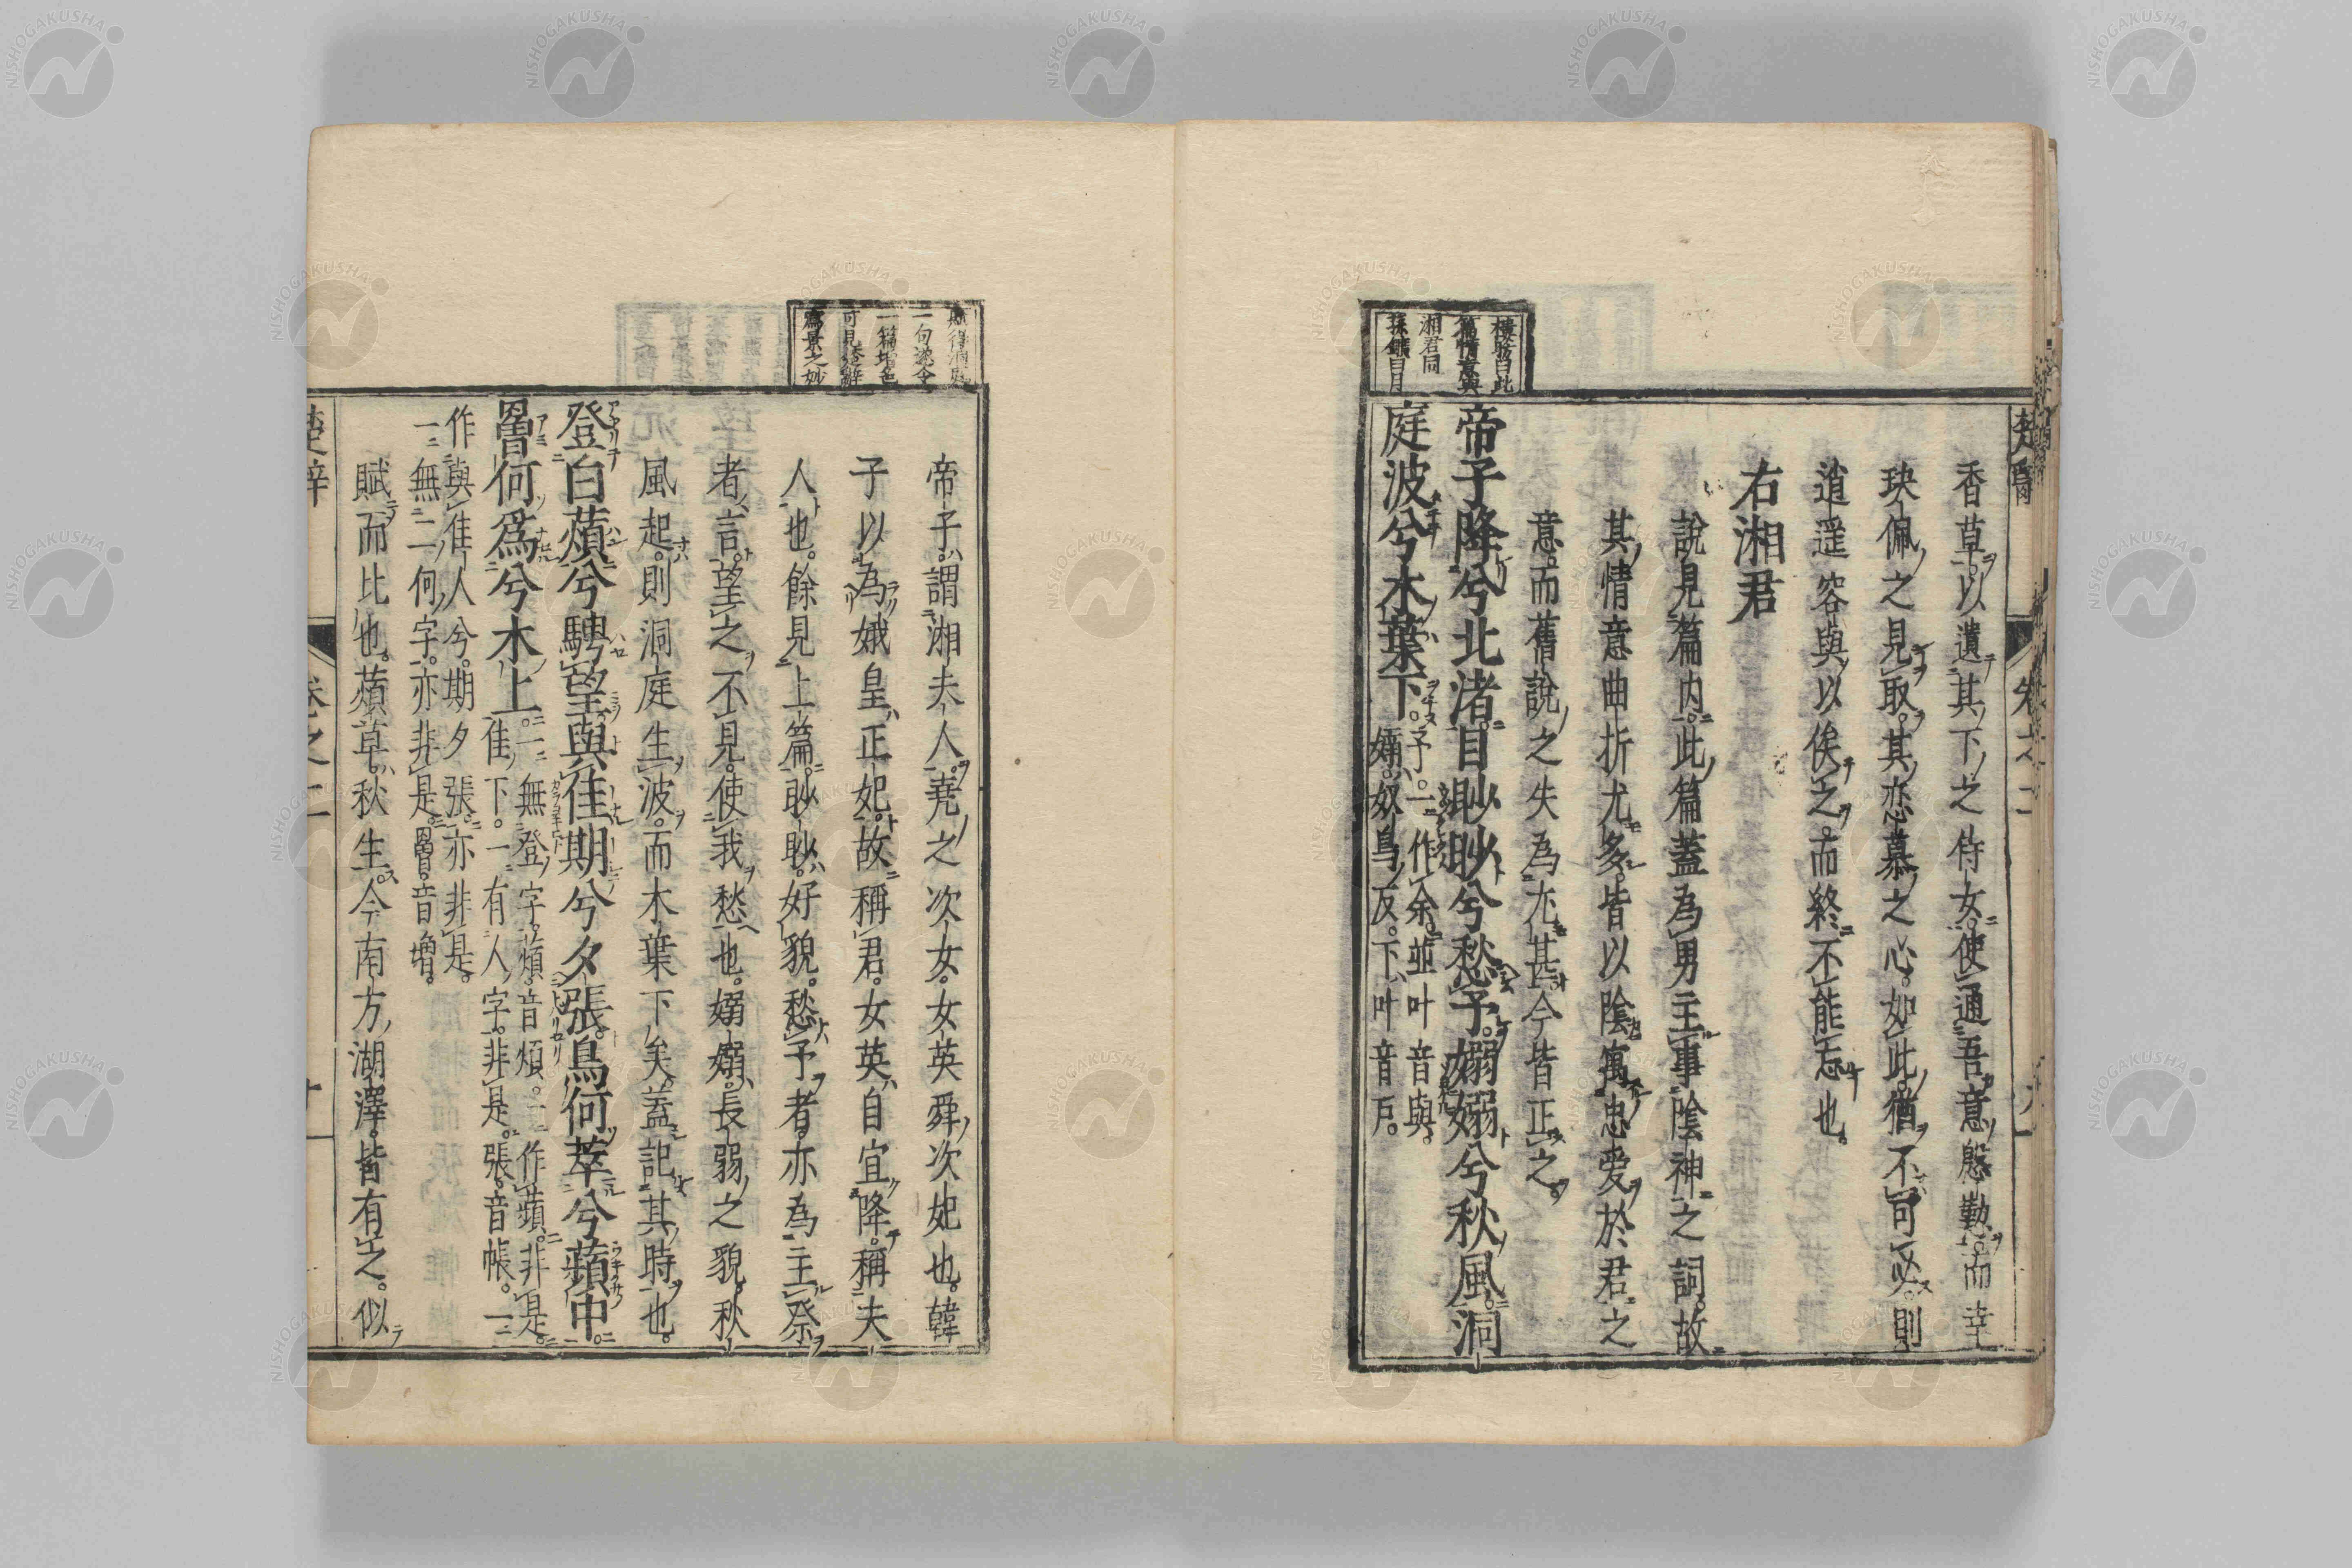 楚辭 卷之二
香草以遺其下之侍女使通吾意慇懃而幸
玦佩之見取其恋慕之心如此猶不可必則
逍遥容與以俟之而終不能忘也
右湘君
說見篇内此篇蓋為男主事陰神之詞故
其情意曲折尤多皆以陰寓忠爱於君之
意而舊說之失為尤甚今皆正之
樓昉曰此
篇情意與
湘君同
孫鑛曰月
帝子降兮北渚目眇眇兮愁予嫋嫋兮秋風洞
庭波兮木葉下
予一作余並叶音與
嫋奴鳥反下叶音戶
一句遂令
一篇增色
可見
寫景之妙
帝子謂湘夫人堯之次女女英舜次妃也韓
子以為娥皇正妃故稱君女英自宜降稱夫
人也餘見上篇眇眇好貌愁予者亦為主祭
者言望之不見使我愁也嫋嫋長弱之貌秋
風起則洞庭生波而木葉下矣蓋記其時也
登白薠兮騁望與佳期兮夕張鳥何萃兮蘋中
罾何為兮木上
一無登字薠音煩一作蘋非是
佳下一有人字非是張音帳一
作與佳人兮期夕張亦非是
一無二何字亦非是罾音增
賦而比也薠草秋生今南方湖澤皆有之似
楚辭 卷之二 十一